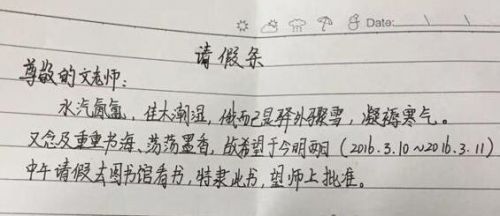 Date: \ \
请假条
尊敬的文老师：
水汽氤氲，佳木潮湿，俄而已是驿外骤雪，凝稀寒气。
又念及重重书海，荡荡墨香，故希望于今明两日（2016.3.10～2016.3.11）
中午请假去图书馆看书，特隶此书，望师上批准。